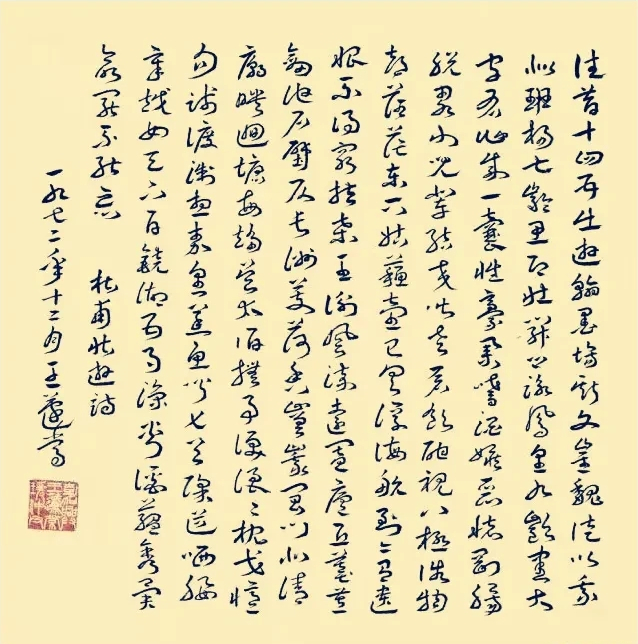 往昔十四五出遊翰墨場斯文崔魏徒以我
似班楊七齡思即壯開口詠鳳皇九齡書大
字有作成一囊性豪業嗜酒嫉惡懷剛腸
脫畧小時輩結交皆老蒼飲酣視八極俗物
都茫茫東下姑蘇臺已具浮海航到今有遺
恨不得窮扶桑王謝風流遠闔廬丘墓荒
劍池石壁仄長洲芰荷香嵯峨閶門北清
廟映迴塘每趨吳太伯撫事淚浪浪枕戈憶
勾踐渡浙想秦皇蒸魚聞匕首除道哂要
章越女天下白鏡湖五月涼剡溪蘊秀異
欲罷不能忘 杜甫壯遊詩
一九七二年十二月王蘧常